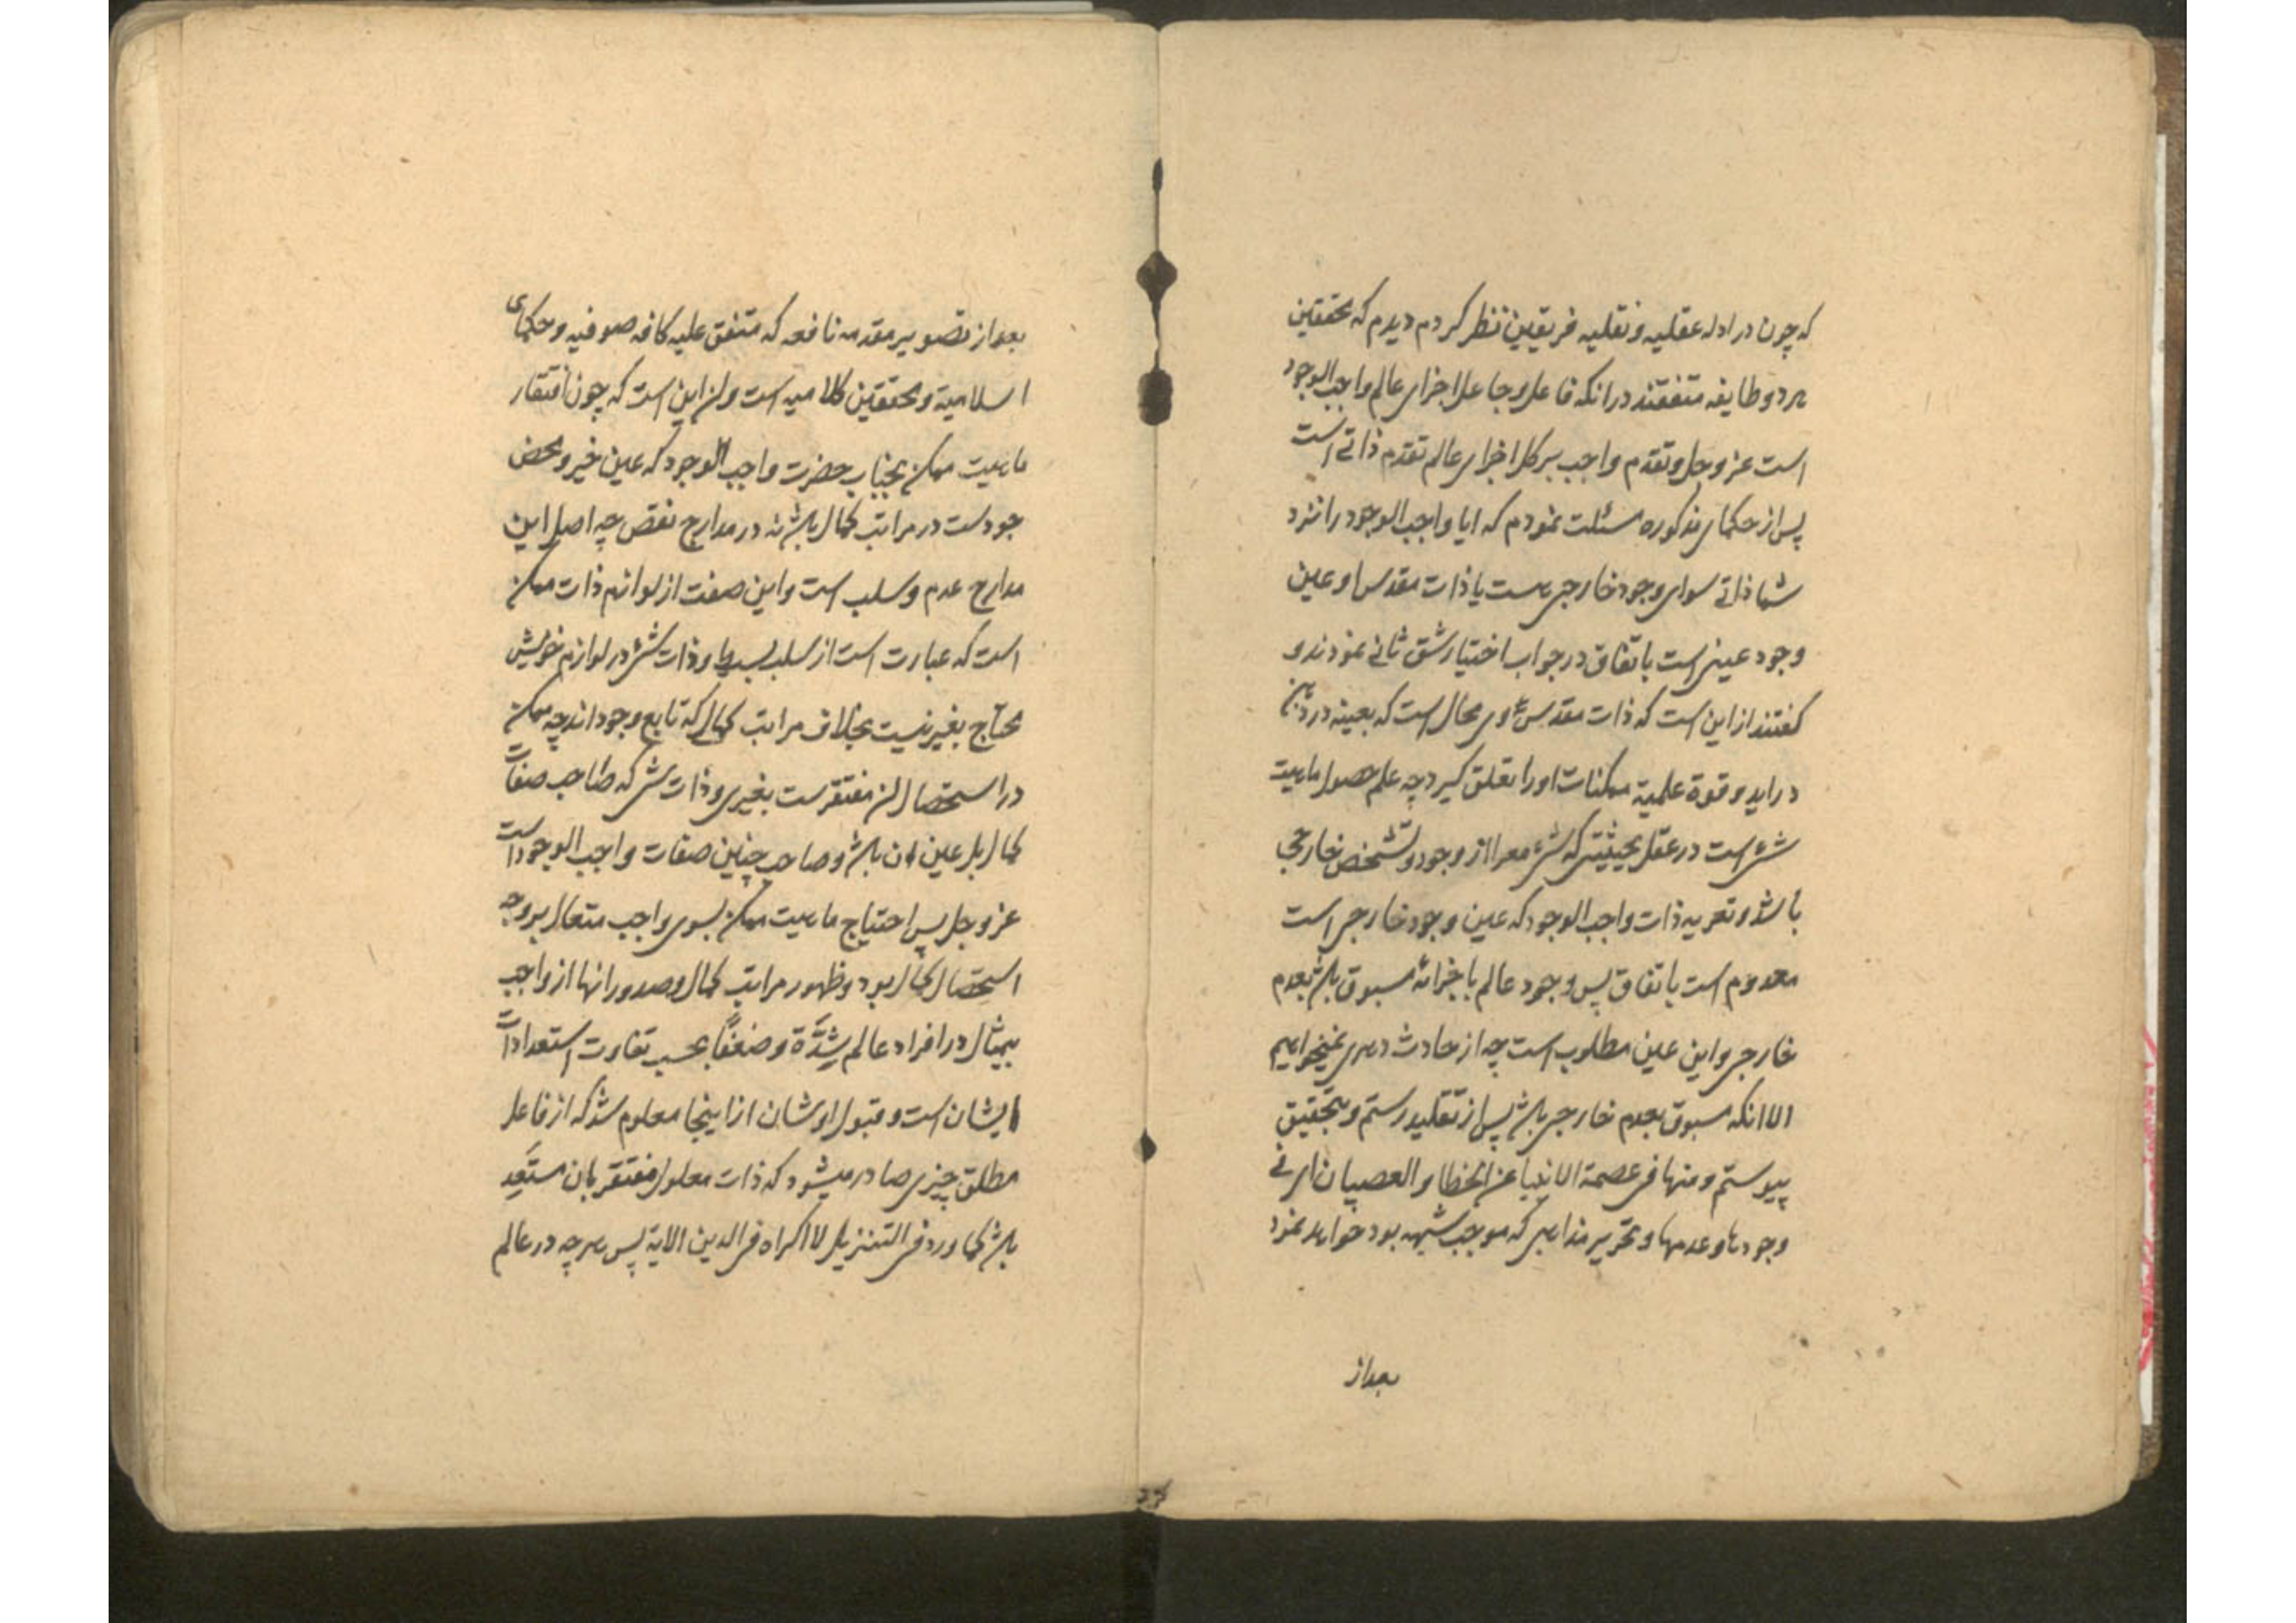 که چون در ادله عقلیه و نقلیه فریقین نظر کردم دیدم که محققین
هر دو طایفه متفقند در انکه فاعل و جاعل اجزای عالم واجب الوجود
است عز و جل و تقدم واجب بر کل اجزای عالم تقدم ذاتی است
پس از حکمای مذکوره مسئلت نمودم که ایا واجب الوجود را نزد
شما ذاتی سوای وجود خارجی هست یا ذات مقدس او عین
وجود عینی است باتفاق در جواب اختیار شق ثانی نمودند و
گفتند از این است که ذات مقدس وی محال است که بعینه در ذهن
در اید و قوة علمیة ممکنات او را تعلق گیرد چه علم حصول ماهیت
شئ است در عقل بحیثیتی که شئ معرا از وجود و تشخص خارجی
باشد و تعریه ذات واجب الوجود که عین وجود خارجی است
معدوم است باتفاق پس وجود عالم باجزائه مسبوق باشد بعدم
خارجی و این عین مطلوب است چه از حادث دهری نمیخواهیم
الا انکه مسبوق بعدم خارجی باشد پس از تقلید رستم و بتحقیق
پیوستم و منها فی عصمة الانبیا عن الخطا و العصیان ای فی
وجودها و عدمها و تحریر مذاهبی که موجب شبهه بود خواهد نمود
بعد از
بعد از تصویر مقدمه نافعه که متفق علیه کافه صوفیه و حکمای
اسلامیة و محققین کلامیه است و ان این است که چون افتقار
ماهیت ممکن بجناب حضرت واجب الوجود که عین خیر و محض
جودست در مراتب کمال باشد نه در مدارج نقص چه اصل این
مدارج عدم و سلب است و این صفت از لوازم ذات ممکن
است که عبارت است از سلب بسیط و ذات شئ در لوازم خویش
محتاج بغیر نیست بخلاف مراتب کمال که تابع وجود اند چه ممکن
در استحصال ان مفتقرست بغیری و ذات شئ که صاحب صفات
کمال بل عین ان باشد و صاحب چنین صفات واجب الوجود است
عز و جل پس احتیاج ماهیت ممکن بسوی واجب متعال بر وجه
استحصال کمال بود و ظهور مراتب کمال و صدور انها از واجب
بیمثال در افراد عالم شِدَّةً و ضعفًا بحسب تفاوت استعدادات
ایشان است و قبول اوشان از اینجا معلوم شد که از فاعل
مطلق چیزی صادر میشود که ذات معلول مفتقر بان مستعِد
باشد کما ورد فی التنزیل لا اکراه فی الدین الایة پس هر چه در عالم